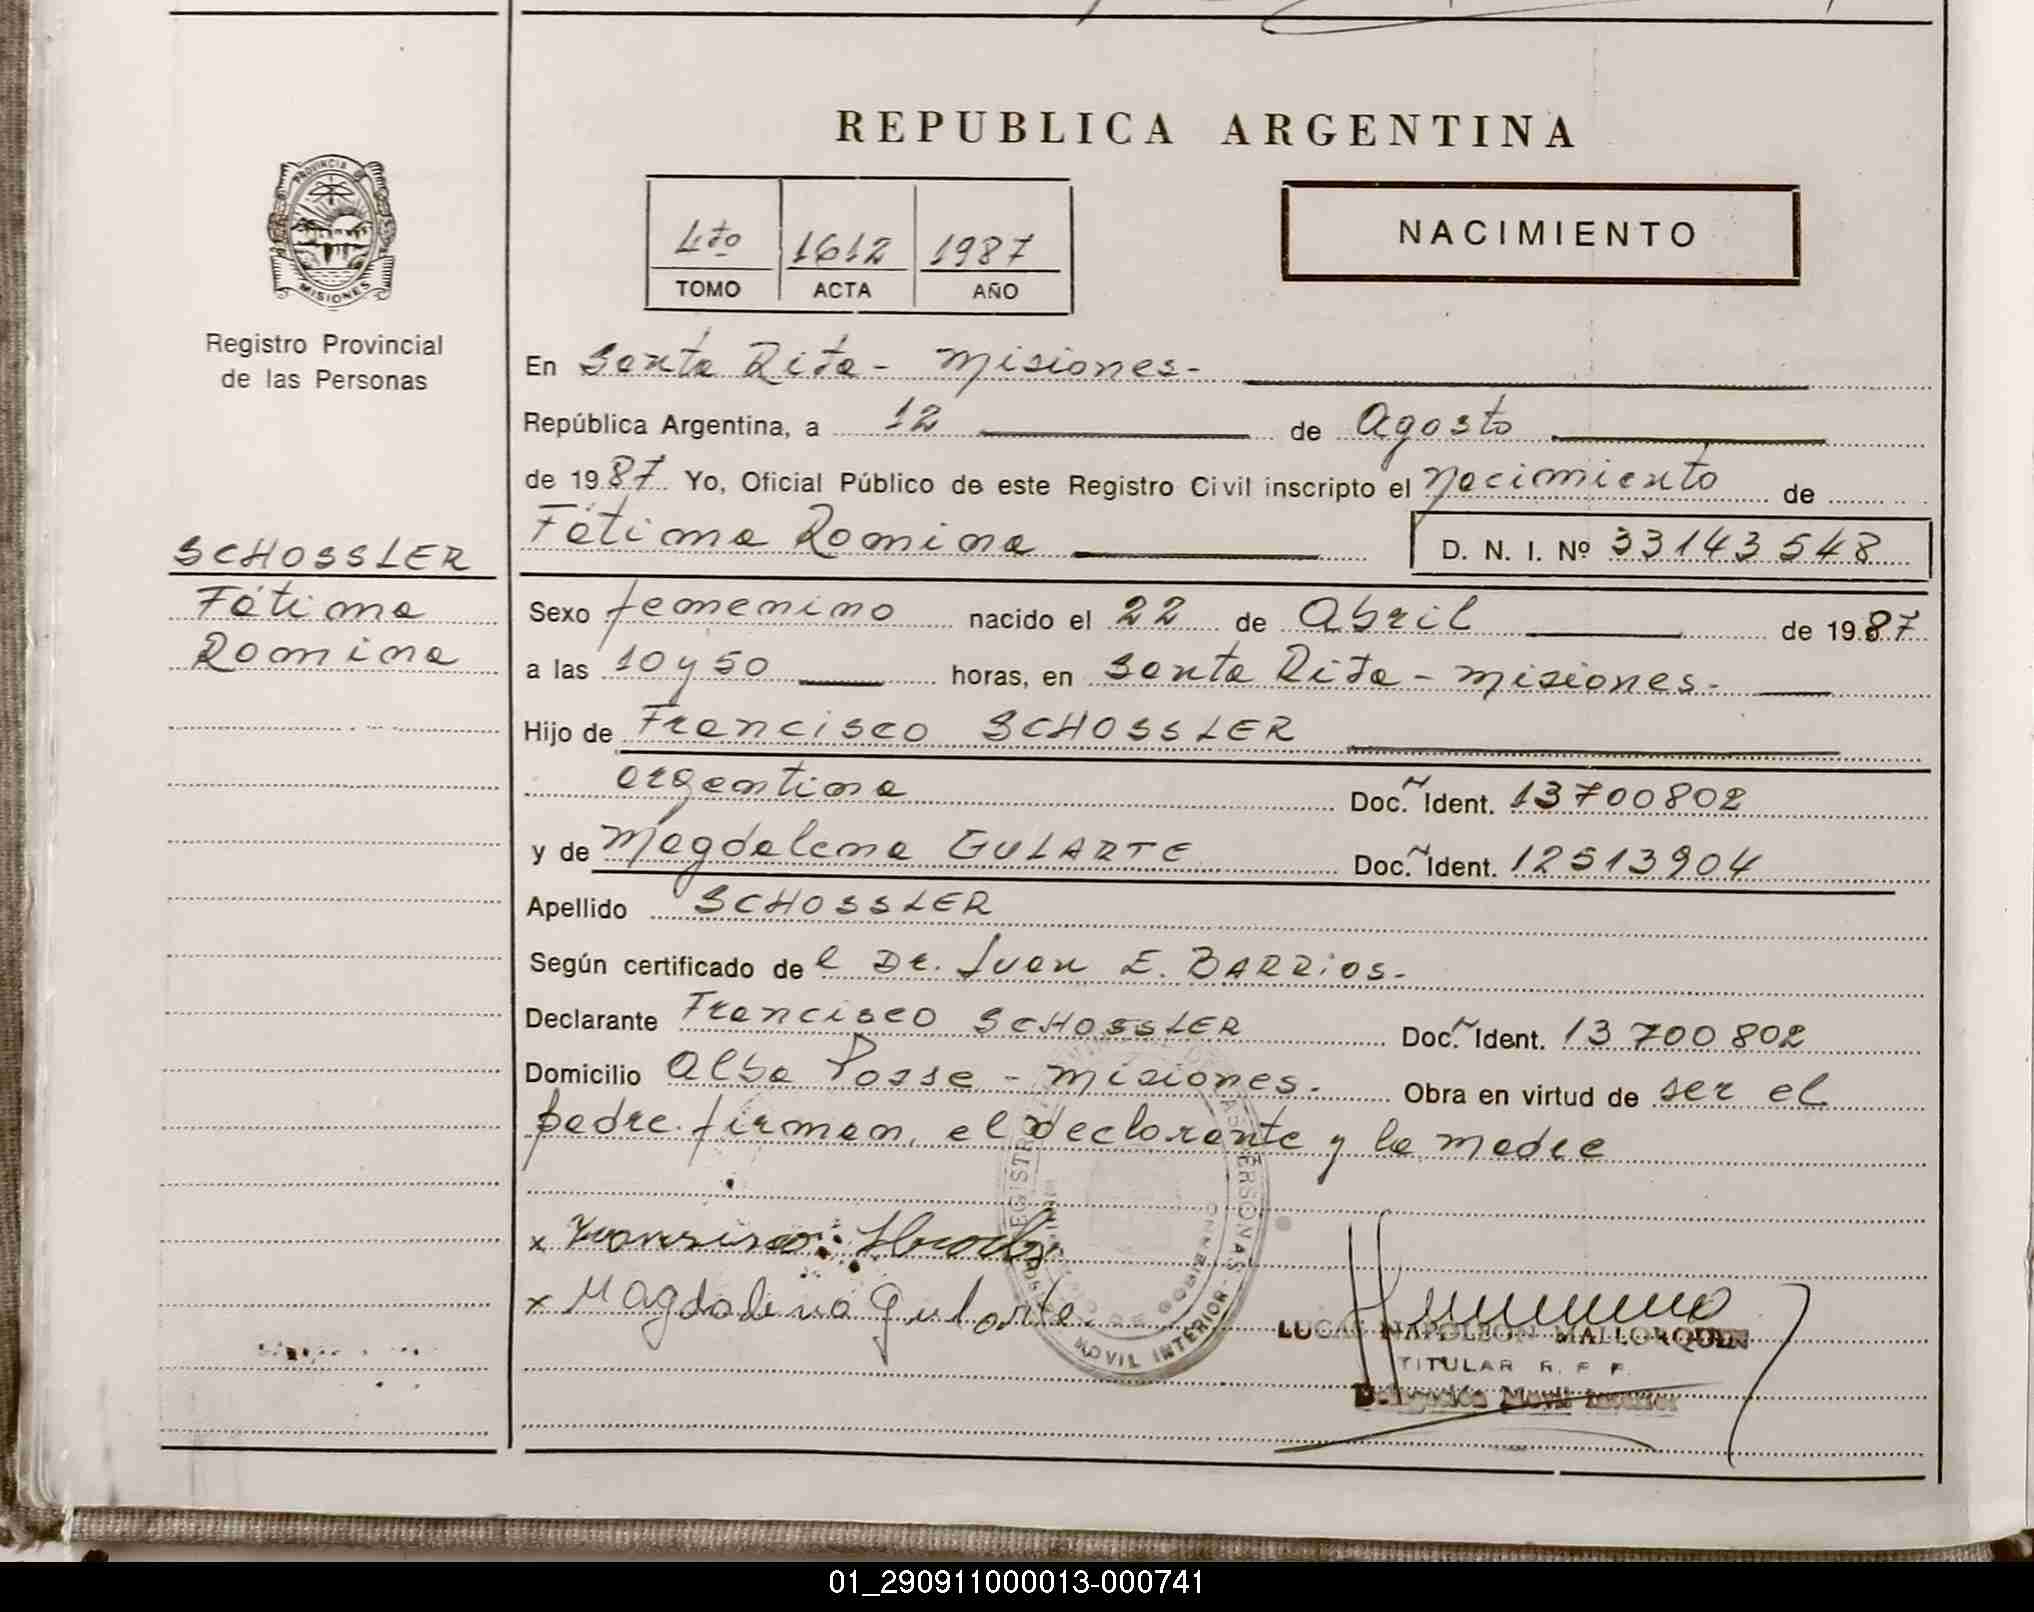 REPUBLICA ARGENTINA
PROVINCIA DE
MISIONES
Registro Provincial
de las Personas
4to 1612 1987
TOMO ACTA AÑO
NACIMIENTO
En Santa Rita - Misiones -
República Argentina, a 12 de Agosto
de 1987 Yo, Oficial Público de este Registro Civil inscripto el Nacimiento de
Fátima Romina D. N. I. Nº 33143548
SCHOSSLER
Fátima
Romina
Sexo femenino nacido el 22 de Abril de 1987
a las 10 y 50 horas, en Santa Rita - Misiones -
Hijo de Francisco SCHOSSLER
argentina Doc. Ident. 13700802
y de Magdalena GULARTE Doc. Ident. 12513904
Apellido SCHOSSLER
Según certificado de l Dr. Juan E. BARRIOS -
Declarante Francisco SCHOSSLER Doc. Ident. 13 700 802
Domicilio Alba Posse - Misiones. Obra en virtud de ser el
padre. firman, el declarante y la madre
x
x Magdalena Gularte
REGISTRO PERSONAS
GOBIERNO
MOVIL INTERIOR
LUCAS NAPOLEON MALLORQUIN
TITULAR R. P. P.
Delegación Movil Interior
01_290911000013-000741